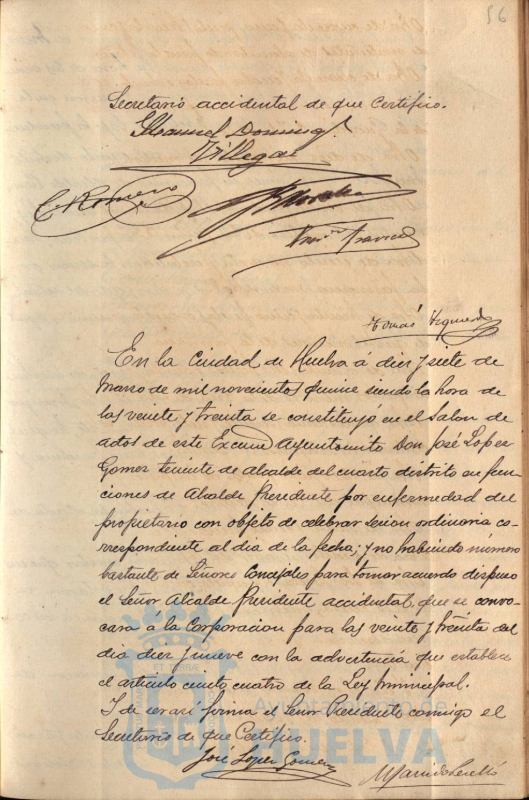 56
Secretario accidental de que certifico.
Manuel Doming.
Villegas
C. Romero
Morales
Franco
Tomás Izquierdo
En la Ciudad de Huelva á diez y siete de
Marzo de mil novecientos quince siendo la hora de
las veinte y treinta se constituyó en el Salon de
actos de este Excmo Ayuntamito Don José Lopez
Gomez teniente de Alcalde del cuarto distrito en fun
ciones de Alcalde Presidente por enfermedad del
propietario con objeto de celebrar sesion ordinaria co-
rrespondiente al dia de la fecha; y no habiendo número
bastante de Señores Concejales para tomar acuerdo dispuso
el Señor Alcalde Presidente accidental, que se convo-
cara á la Corporacion para las veinte y treinta del
dia diez y nueve con la advertencia que establece
el articulo ciento cuatro de la Ley Municipal.
I de cerrar firma el Señor Presidente conmigo el
Secretario de que Certifico.
José Lopez Gomez
ET TERRA
Ayuntamiento de
HUELVA